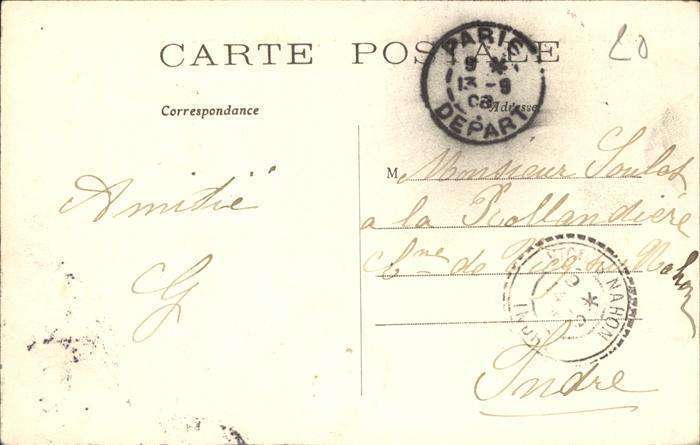 CARTE POSTALE
20
PARIS
9 *
13 - 9
08
DEPART
Correspondance
Adresse
Amitié
G
M Monsieur Soulat
a la Rollandière
Cne de Vicq sur Nahon
NAHON
*
Indre